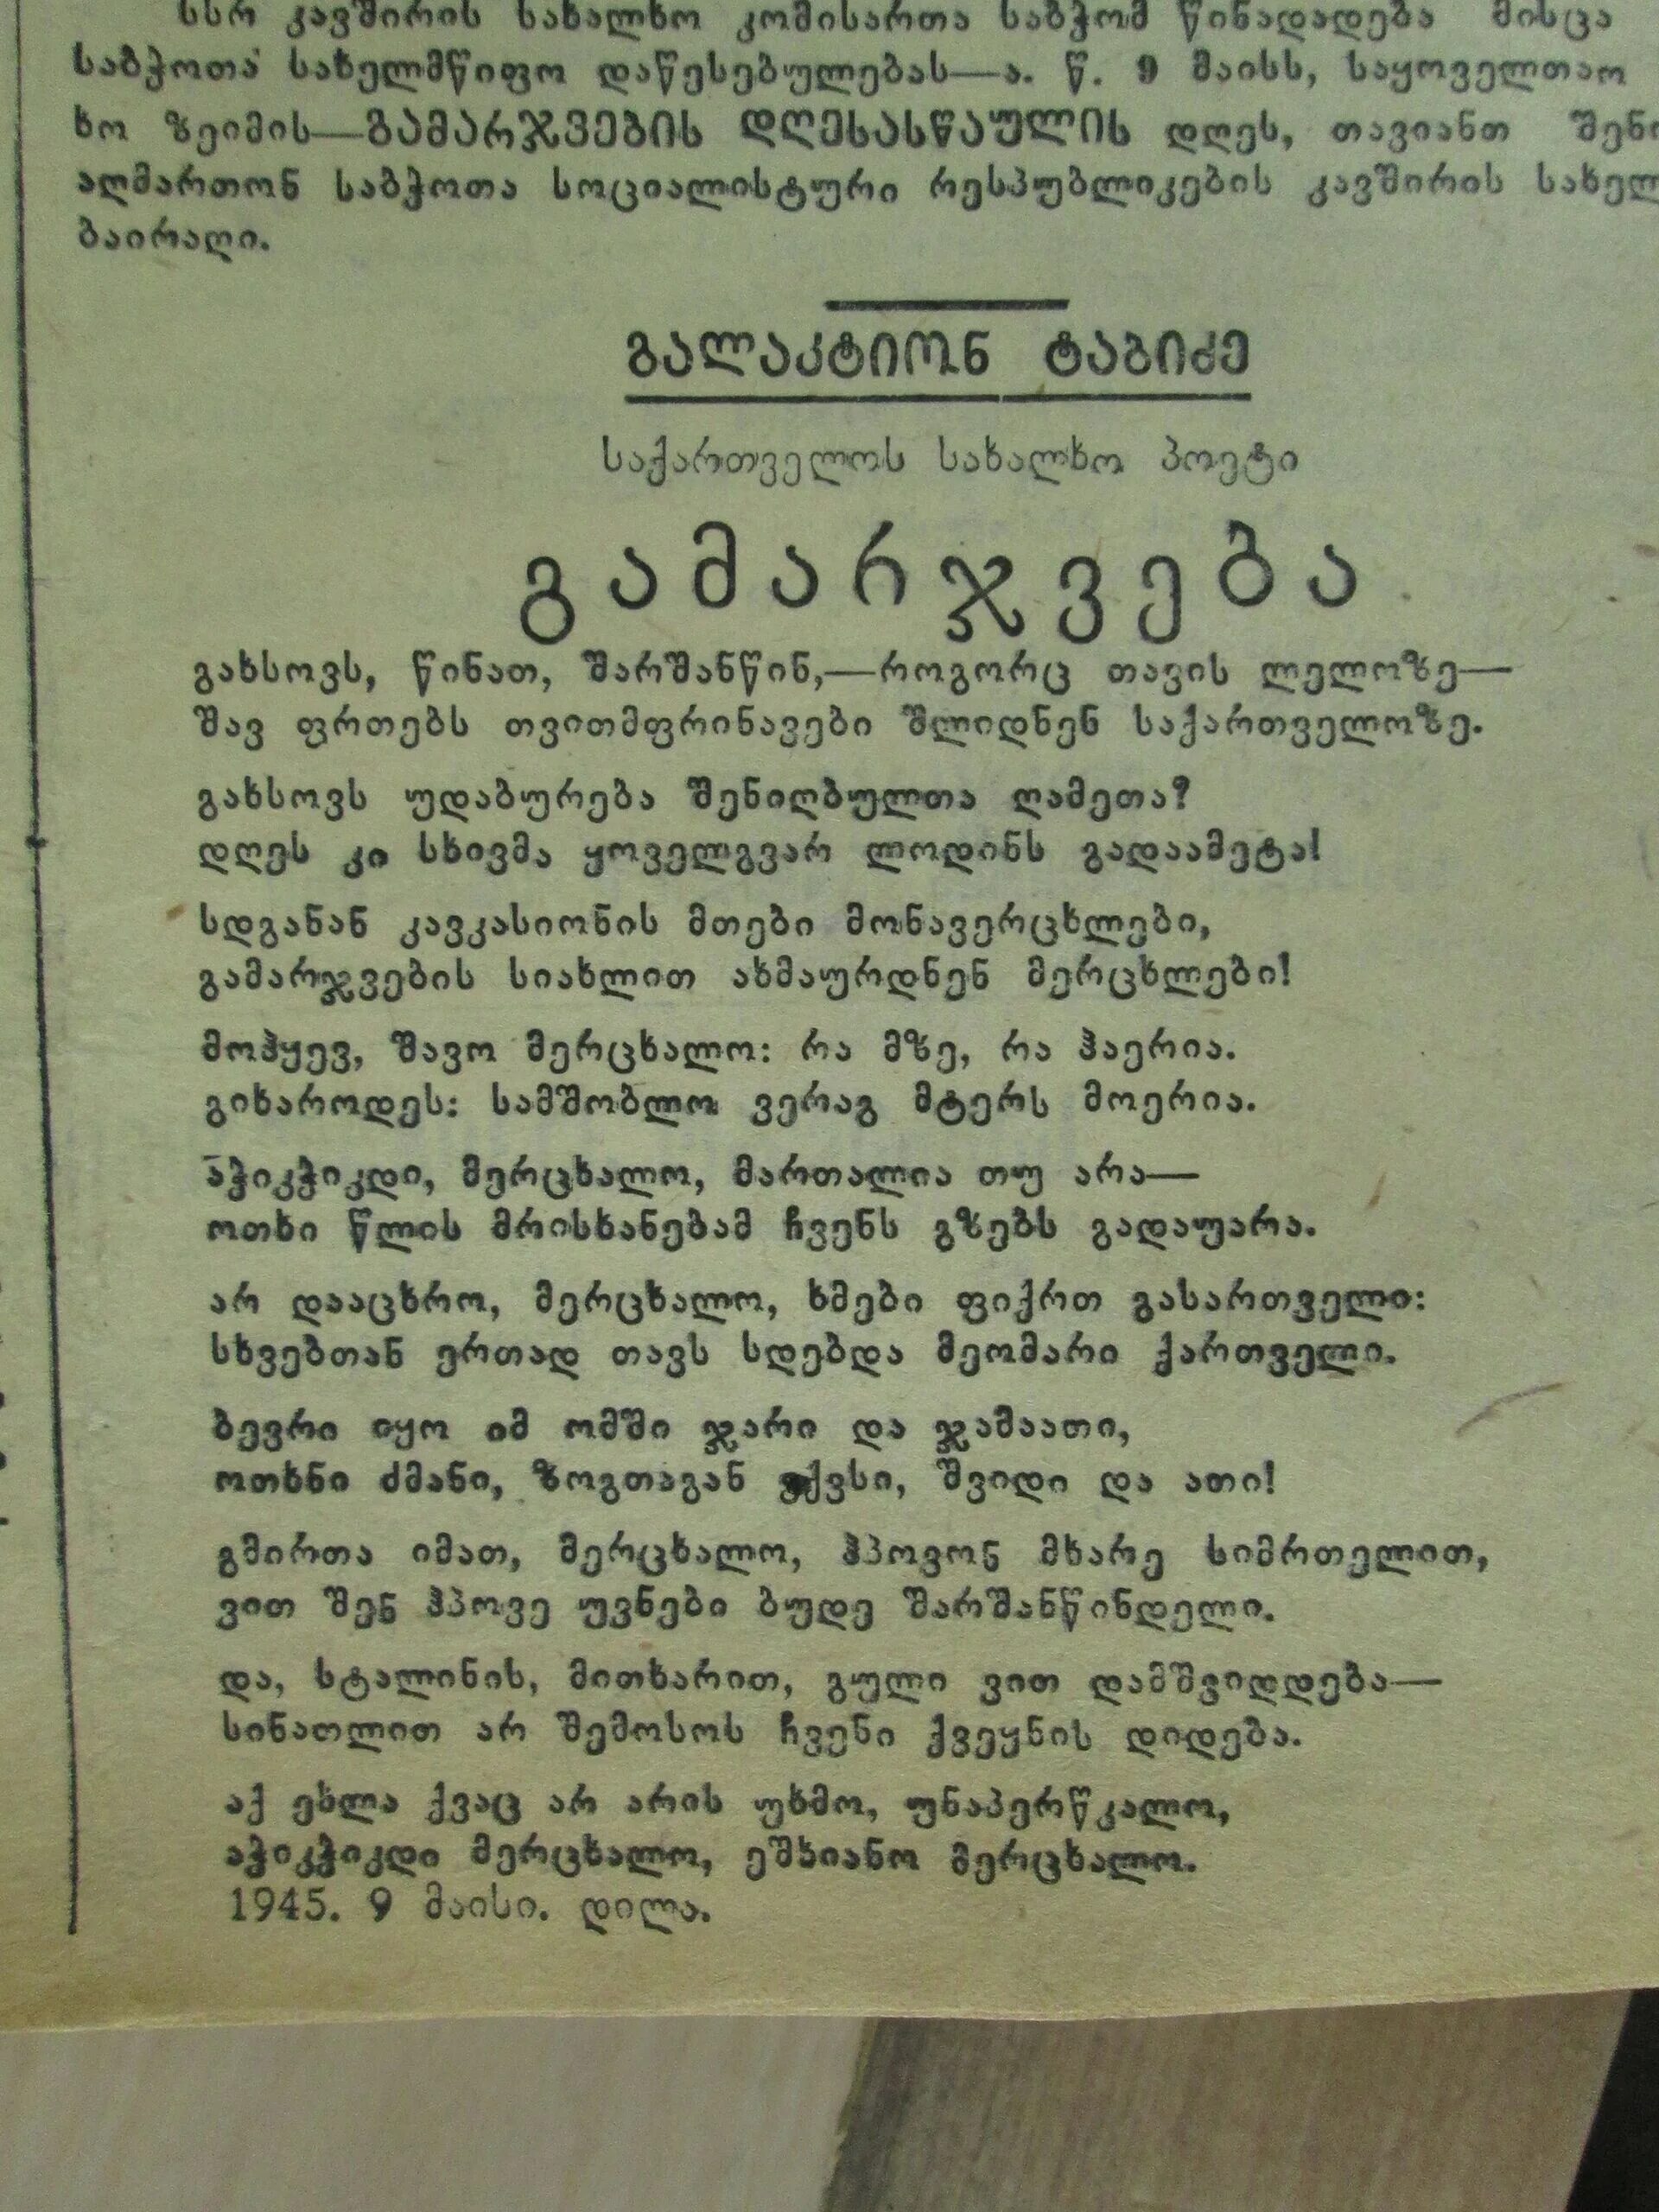 სსრ კავშირის სახალხო კომისართა საბჭომ წინადადება მისცა
საბჭოთა სახელმწიფო დაწესებულებას—ა. წ. 9 მაისს, საყოველთაო
ხო ზეიმის—გამარჯვების დღესასწაულის დღეს, თავიანთ შენო
აღმართონ საბჭოთა სოციალისტური რესპუბლიკების კავშირის სახელ
ბაირაღი.
გალაკტიონ ტაბიძე
საქართველოს სახალხო პოეტი
გამარჯვება
გახსოვს, წინათ, შარშანწინ,—როგორც თავის ლელოზე—
შავ ფრთებს თვითმფრინავები შლიდნენ საქართველოზე.
გახსოვს უდაბურება შენიღბულთა ღამეთა?
დღეს კი სხივმა ყოველგვარ ლოდინს გადაამეტა!
სდგანან კავკასიონის მთები მონავერცხლები,
გამარჯვების სიახლით ახმაურდნენ მერცხლები!
მოჰყევ, შავო მერცხალო: რა მზე, რა ჰაერია.
გიხაროდეს: სამშობლო ვერაგ მტერს მოერია.
აჭიკჭიკდი, მერცხალო, მართალია თუ არა—
ოთხი წლის მრისხანებამ ჩვენს გზებს გადაუარა.
არ დააცხრო, მერცხალო, ხმები ფიქრთ გასართველი:
სხვებთან ერთად თავს სდებდა მეომარი ქართველი.
ბევრი იყო იმ ომში ჯარი და ჯამაათი,
ოთხნი ძმანი, ზოგთაგან ექვსი, შვიდი და ათი!
გმირთა იმათ, მერცხალო, ჰპოვონ მხარე სიმრთელით,
ვით შენ ჰპოვე უვნები ბუდე შარშანწინდელი.
და, სტალინის, მითხარით, გული ვით დამშვიდდება—
სინათლით არ შემოსოს ჩვენი ქვეყნის დიდება.
აქ ეხლა ქვაც არ არის უხმო, უნაპერწკალო,
აჭიკჭიკდი მერცხალო, ეშხიანო მერცხალო.
1945. 9 მაისი. დილა.